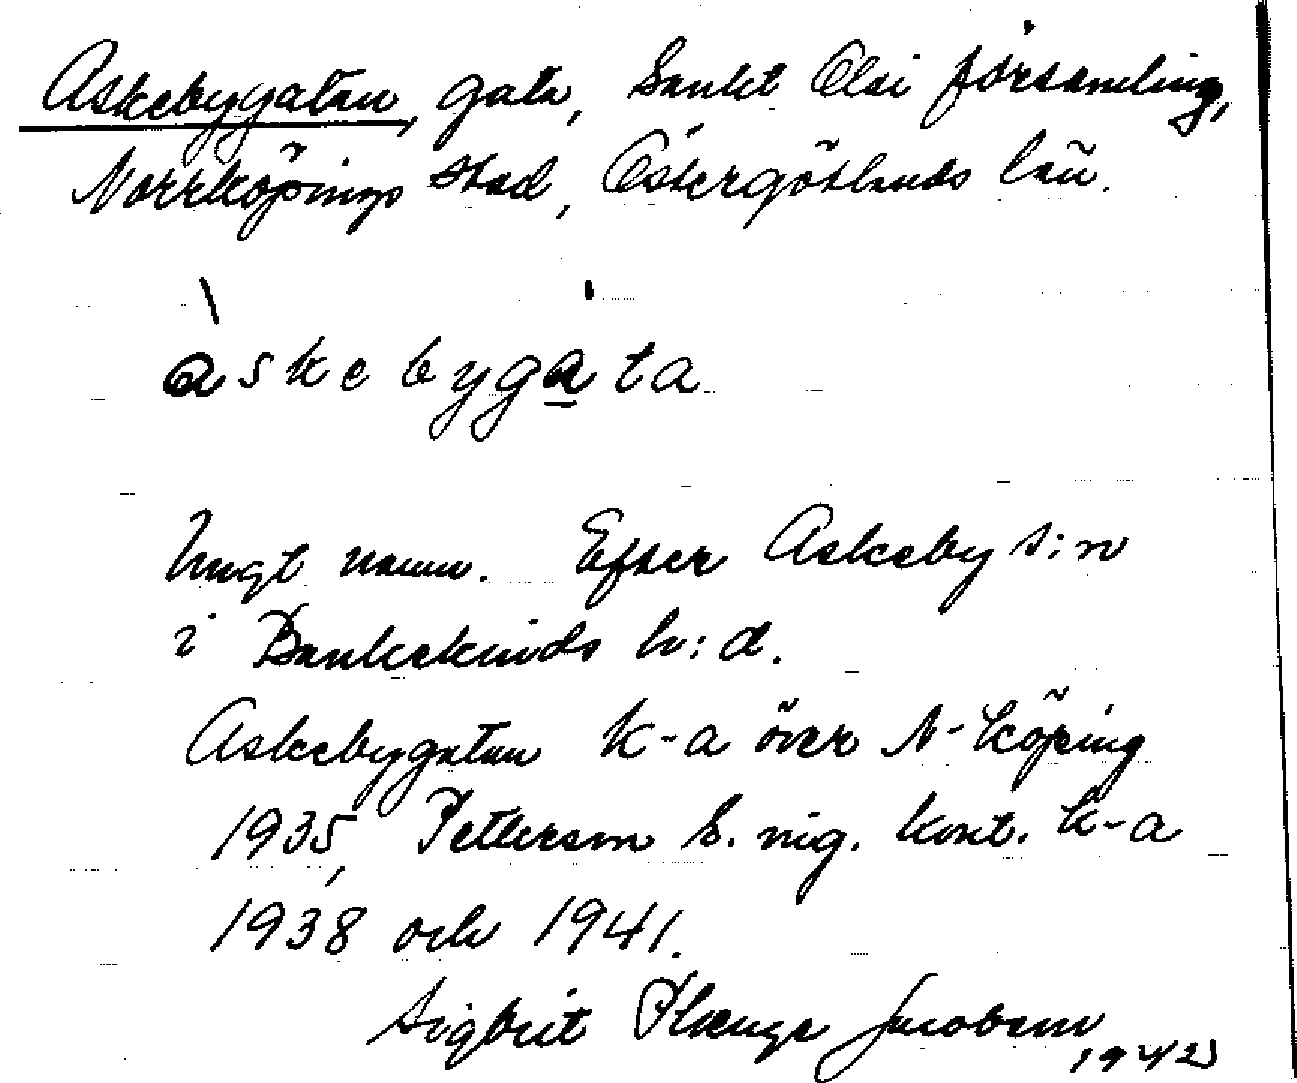 Askebygatan, gata, Sankt Olai församling,
Norrköpings stad, Östergötlands län.
àskebygata
Ungt namn. Efter Askeby s:n
i Bankekinds h:d.
Askebygatan K-a över N-köping
1935, Petterson S. nig. kont. k-a
1938 och 1941.
Sigbrit Plænge Jacobson
1942